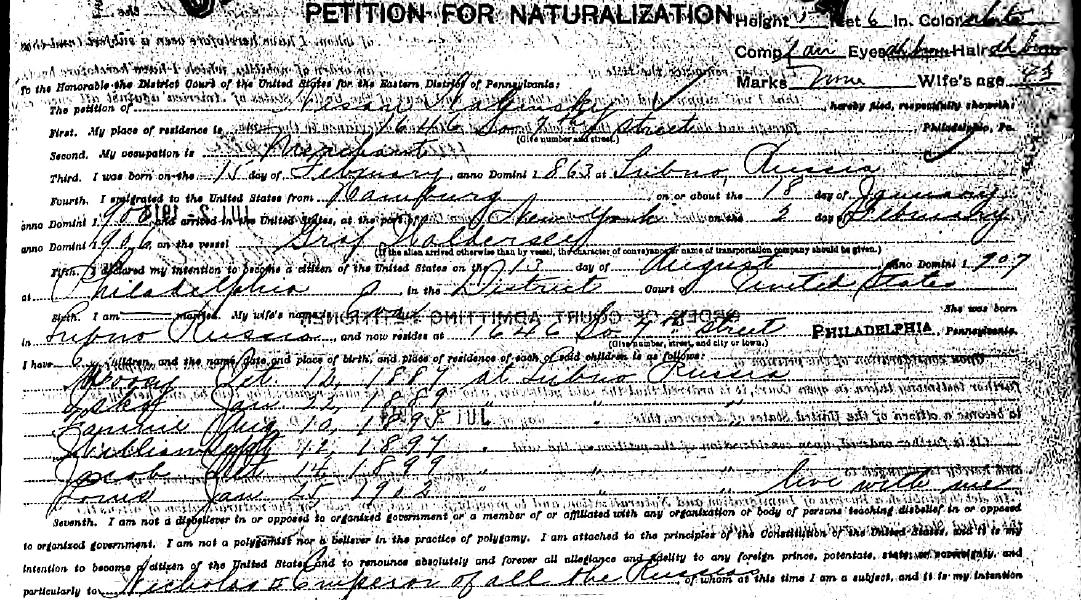 PETITION FOR NATURALIZATION
Height 5 feet 6 in. Color white
Comp fair Eyes dk brn Hair dk brn
Marks None Wife's age 43
To the Honorable the District Court of the United States for the Eastern District of Pennsylvania:
The petition of hereby filed, respectfully showeth:
First. My place of residence is 1646 So. 7th street Philadelphia, Pa.
(Give number and street.)
Second. My occupation is Merchant
Third. I was born on the 15 day of February, anno Domini 1863 at Dubno, Russia
Fourth. I emigrated to the United States from Hamburg on or about the 18 day of January
anno Domini 190 and arrived in the United States, at the port of New York on the 2 day February
anno Domini 190 , on the vessel Graf Waldersey
(If the alien arrived otherwise than by vessel, the character of conveyance or name of transportation company should be given.)
Fifth. I declared my intention to become a citizen of the United States on the 13 day of August anno Domini 1907
at Philadelphia in the District Court of United States
Sixth. I am married. My wife's name is She was born
in Dubno Russia, and now resides at 1646 So 7th street PHILADELPHIA, Pennsylvania.
(Give number, street, and city or town.)
I have 6 children, and the name, date and place of birth, and place of residence of each of said children is as follows:
12, 1887 at Dubno Russia
Jan 22, 1889 " "
Fannie Aug 10, 189 " "
William 12, 1897 " "
Jacob 14, 1899 " "
Louis Jan 25 1902 " " " live with me
Seventh. I am not a disbeliever in or opposed to organized government or a member of or affiliated with any organization or body of persons teaching disbelief in or opposed
to organized government. I am not a polygamist nor a believer in the practice of polygamy. I am attached to the principles of the Constitution of the United States, and it is my
intention to become a citizen of the United States and to renounce absolutely and forever all allegiance and fidelity to any foreign prince, potentate, state, or sovereignty, and
particularly to Nicholas II Emperor of all the Russias, of whom at this time I am a subject, and it is my intention